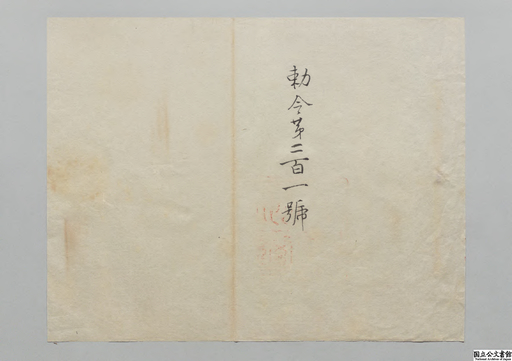 勅令第二百一號
国立公文書館
National Archives of Japan